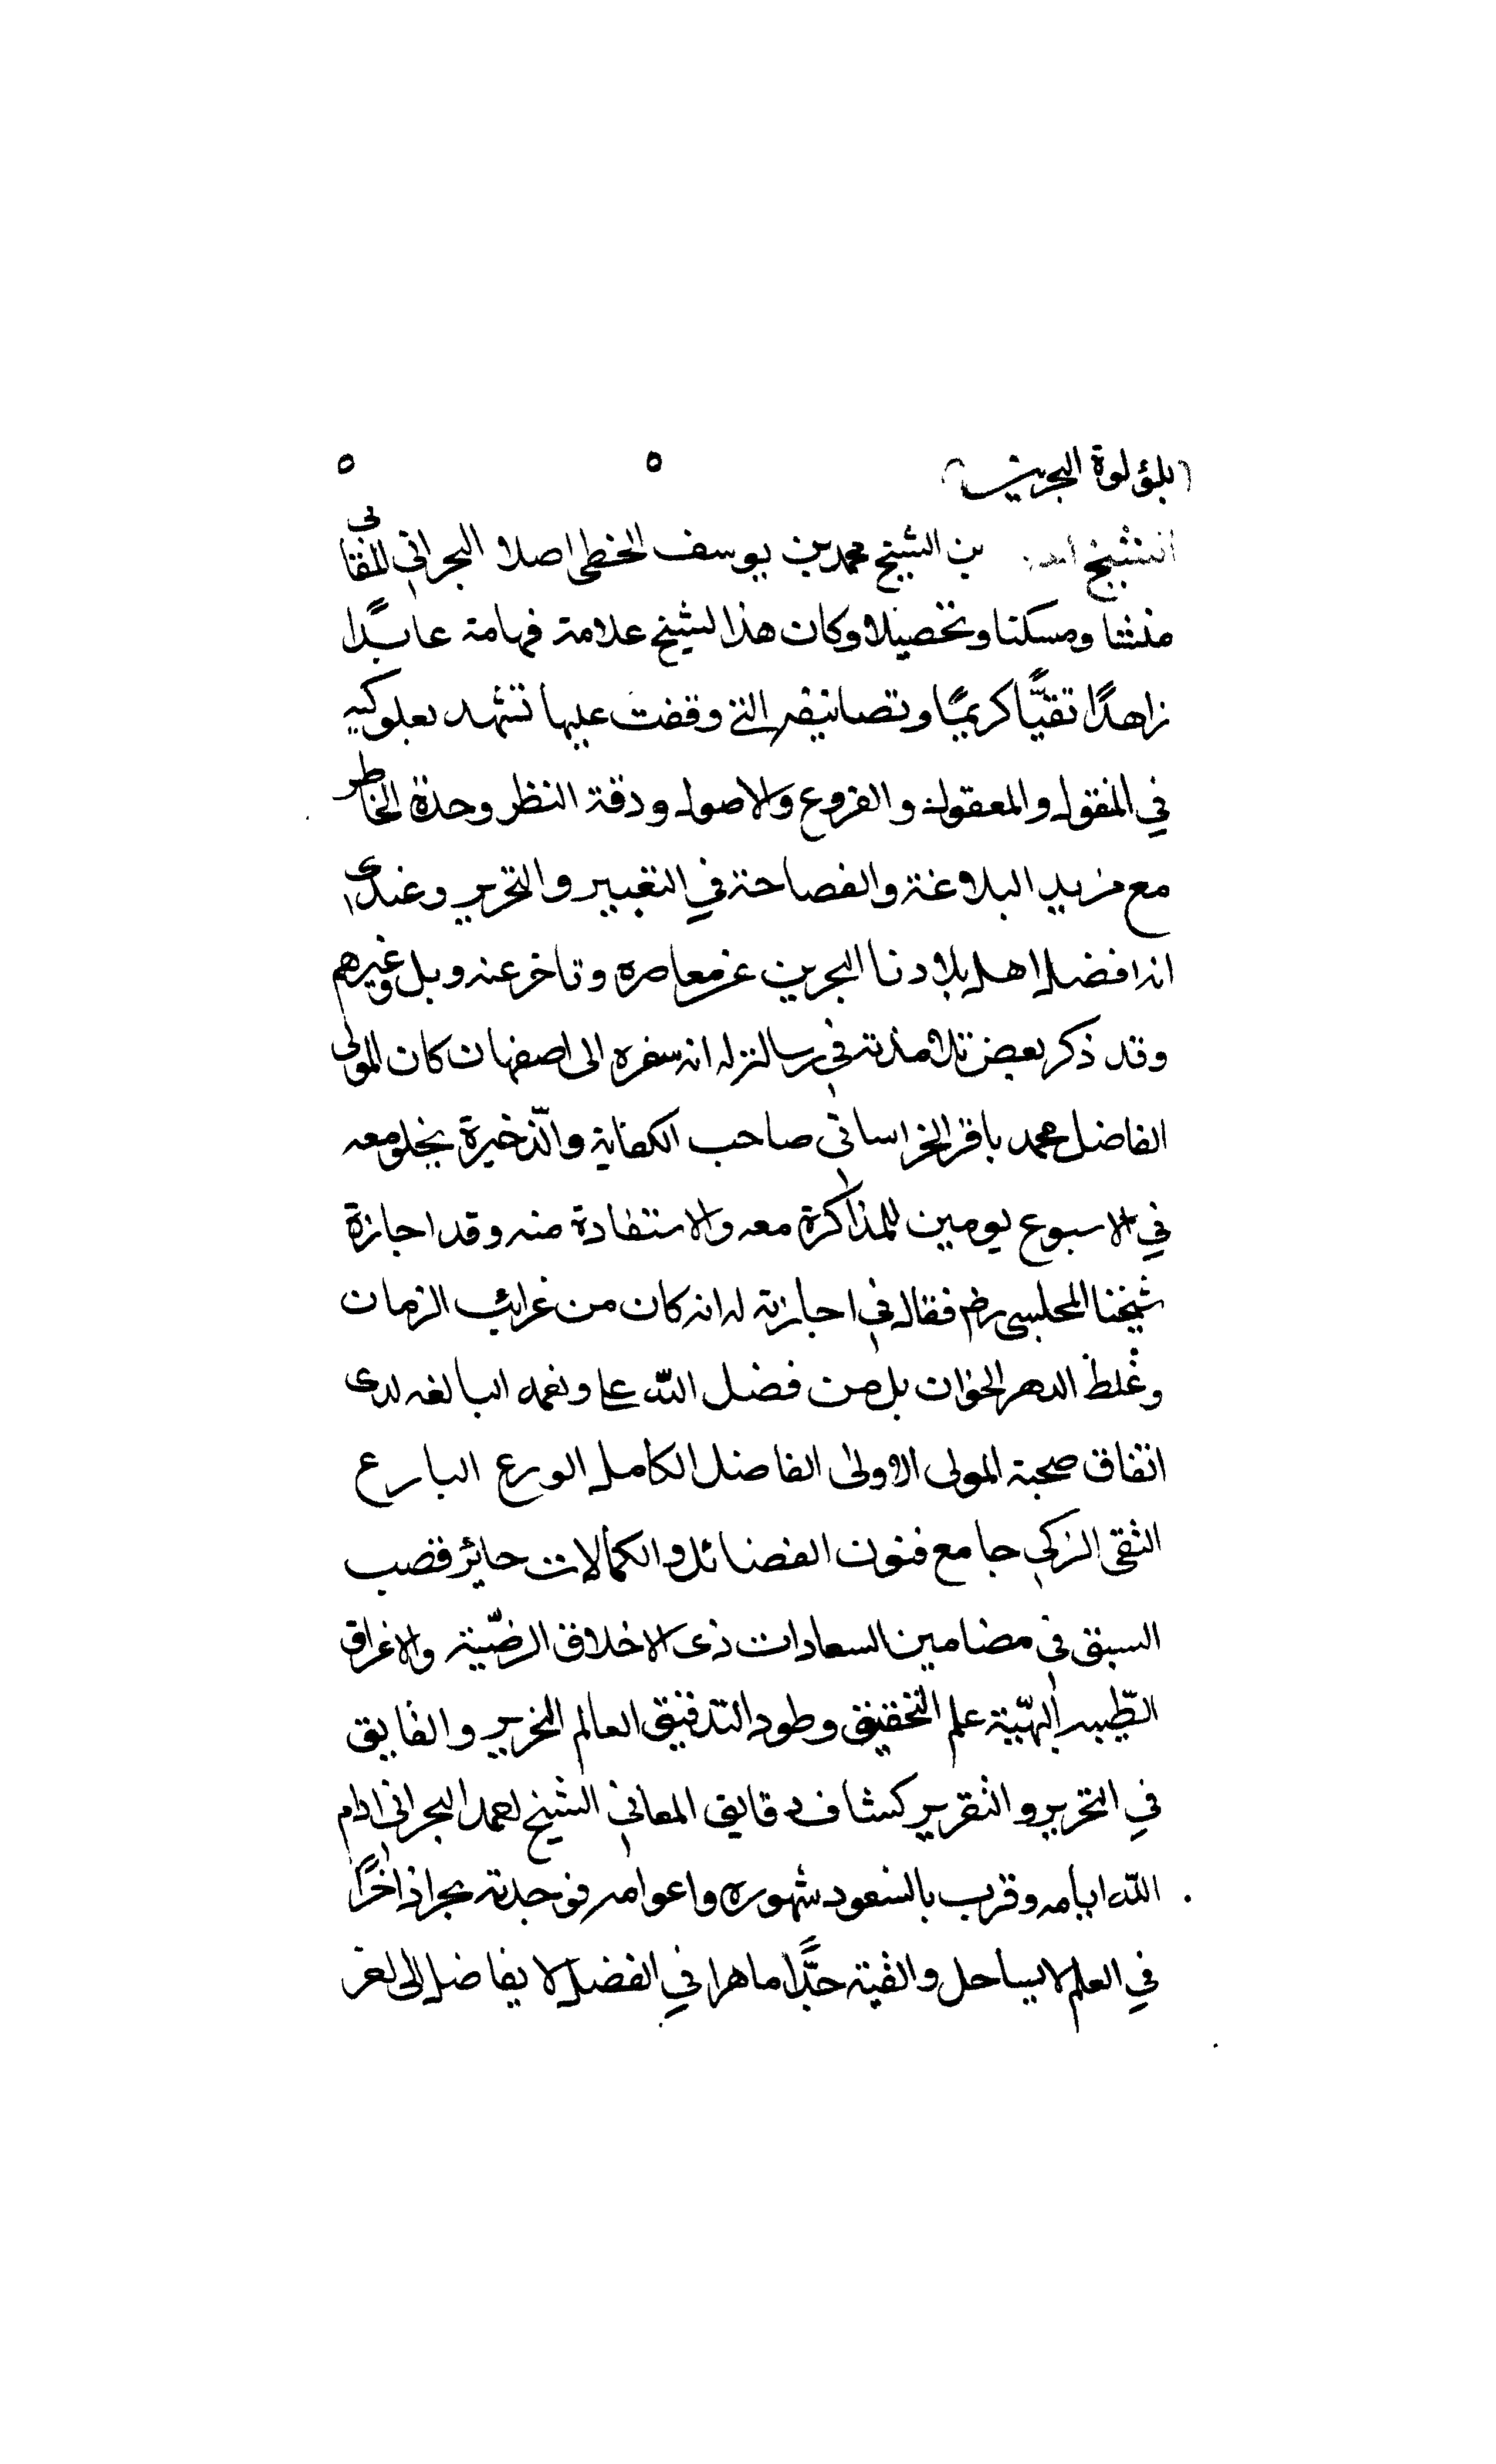 بلؤلوة البحرين
الشيخ احمد بن الشيخ محمد بن يوسف الخطى اصلا البحراني المقابى
منشئا ومسكنا وتحصيلا وكان هذا الشيخ علامة فهامة عابدًا
زاهدًا تقيًّا كريمًا وتصانيفه التي وقفت عليها تشهد بعلو كعبه
في المنقول والمعقول والفروع والاصول ودقة النظر وحدة الخاطر
مع مزيد البلاغة والفصاحة في التعبير والتحرير وعندى
انه افضل اهل بلادنا البحرين عمن معاصره وتاخر عنه وبل وغيرهم
وقد ذكر بعض تلامذته في رسالة له انه سفره الى اصفهان كان المولى
الفاضل محمد باقر الخراسانى صاحب الكفاية والذّخيرة يخلو معه
في الاسبوع يومين للمذاكرة معه والاستفادة منه وقد اجازة
شيخنا المجلسى رض فقال في اجازته له انه كان من غرايب الزمان
وغلط الدهر الخوان بل من فضل اللّه على ونعمه البالغه لدى
اتفاق صحبة المولى الاولى الفاضل الكامل الورع البارع
التقى الزكي جامع فنون الفضائل والكمالات حائز قصب
السبق في مضامين السعادات ذى الاخلاق الرضّية والاعراق
الطّيبه البهّية علم التحقيق وطود التدقيق العالم النحرير والفايق
في التحرير والتقرير كشاف دقايق المعاني الشيخ احمد البحراني ادام
اللّه ايامه وقرب بالسعود شهوره واعوامه فوجدته بحرا زاخرًا
في العلم لا يساحل والفيته حبًّرا ماهرا في الفضل لا يفاضل الى